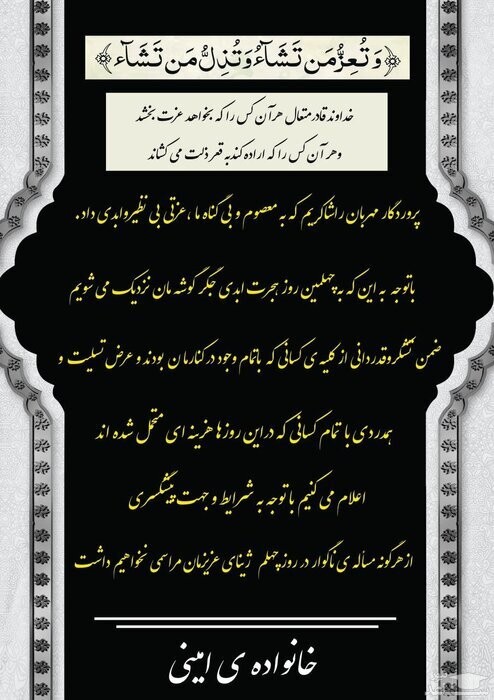 ﴿وَتُعِزُّ مَن تَشَآءُ وَتُذِلُّ مَن تَشَآء﴾
خداوند قادر متعال هر آن کس را که بخواهد عزت بخشد
و هر آن کس را که اراده کند به قعر ذلت می کشاند
پروردگار مهربان را شاکریم که به معصوم و بی گناه ما ، عزتی بی نظیر و ابدی داد.
باتوجه به این که به چهلمین روز هجرت ابدی جگر گوشه مان نزدیک می شویم
ضمن تشکر و قدردانی از کلیه ی کسانی که باتمام وجود در کنارمان بودند و عرض تسلیت و
همدردی با تمام کسانی که در این روزها هزینه ای متحمل شده اند
اعلام می کنیم باتوجه به شرایط و جهت پیشگیری
از هرگونه مسأله ی ناگوار در روز چهلم ژینای عزیزمان مراسمی نخواهیم داشت
خانواده ی امینی